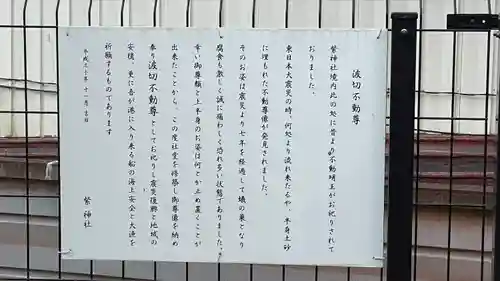 波切不動尊
鷲神社境内此の処に昔より不動明王がお祀りされて
おりました。
東日本大震災の時、何処より流れ来たるや、半身土砂
に埋もれた不動尊像が発見されました。
そのお姿は震災より七年を経過して蟻の巣となり
腐食も激しく誠に痛わしく恐れ多い状態でありました。
幸い御尊顔と上半身のお姿は何とか止め置くことが
出来たことから、この度社堂を修築し御尊像を納め
奉り波切不動尊としてお祀りし震災復興と地域の
安穏、更に吾が港に入り来る船の海上安全と大漁を
祈願するものであります
平成三十年十一月吉日
鷲神社